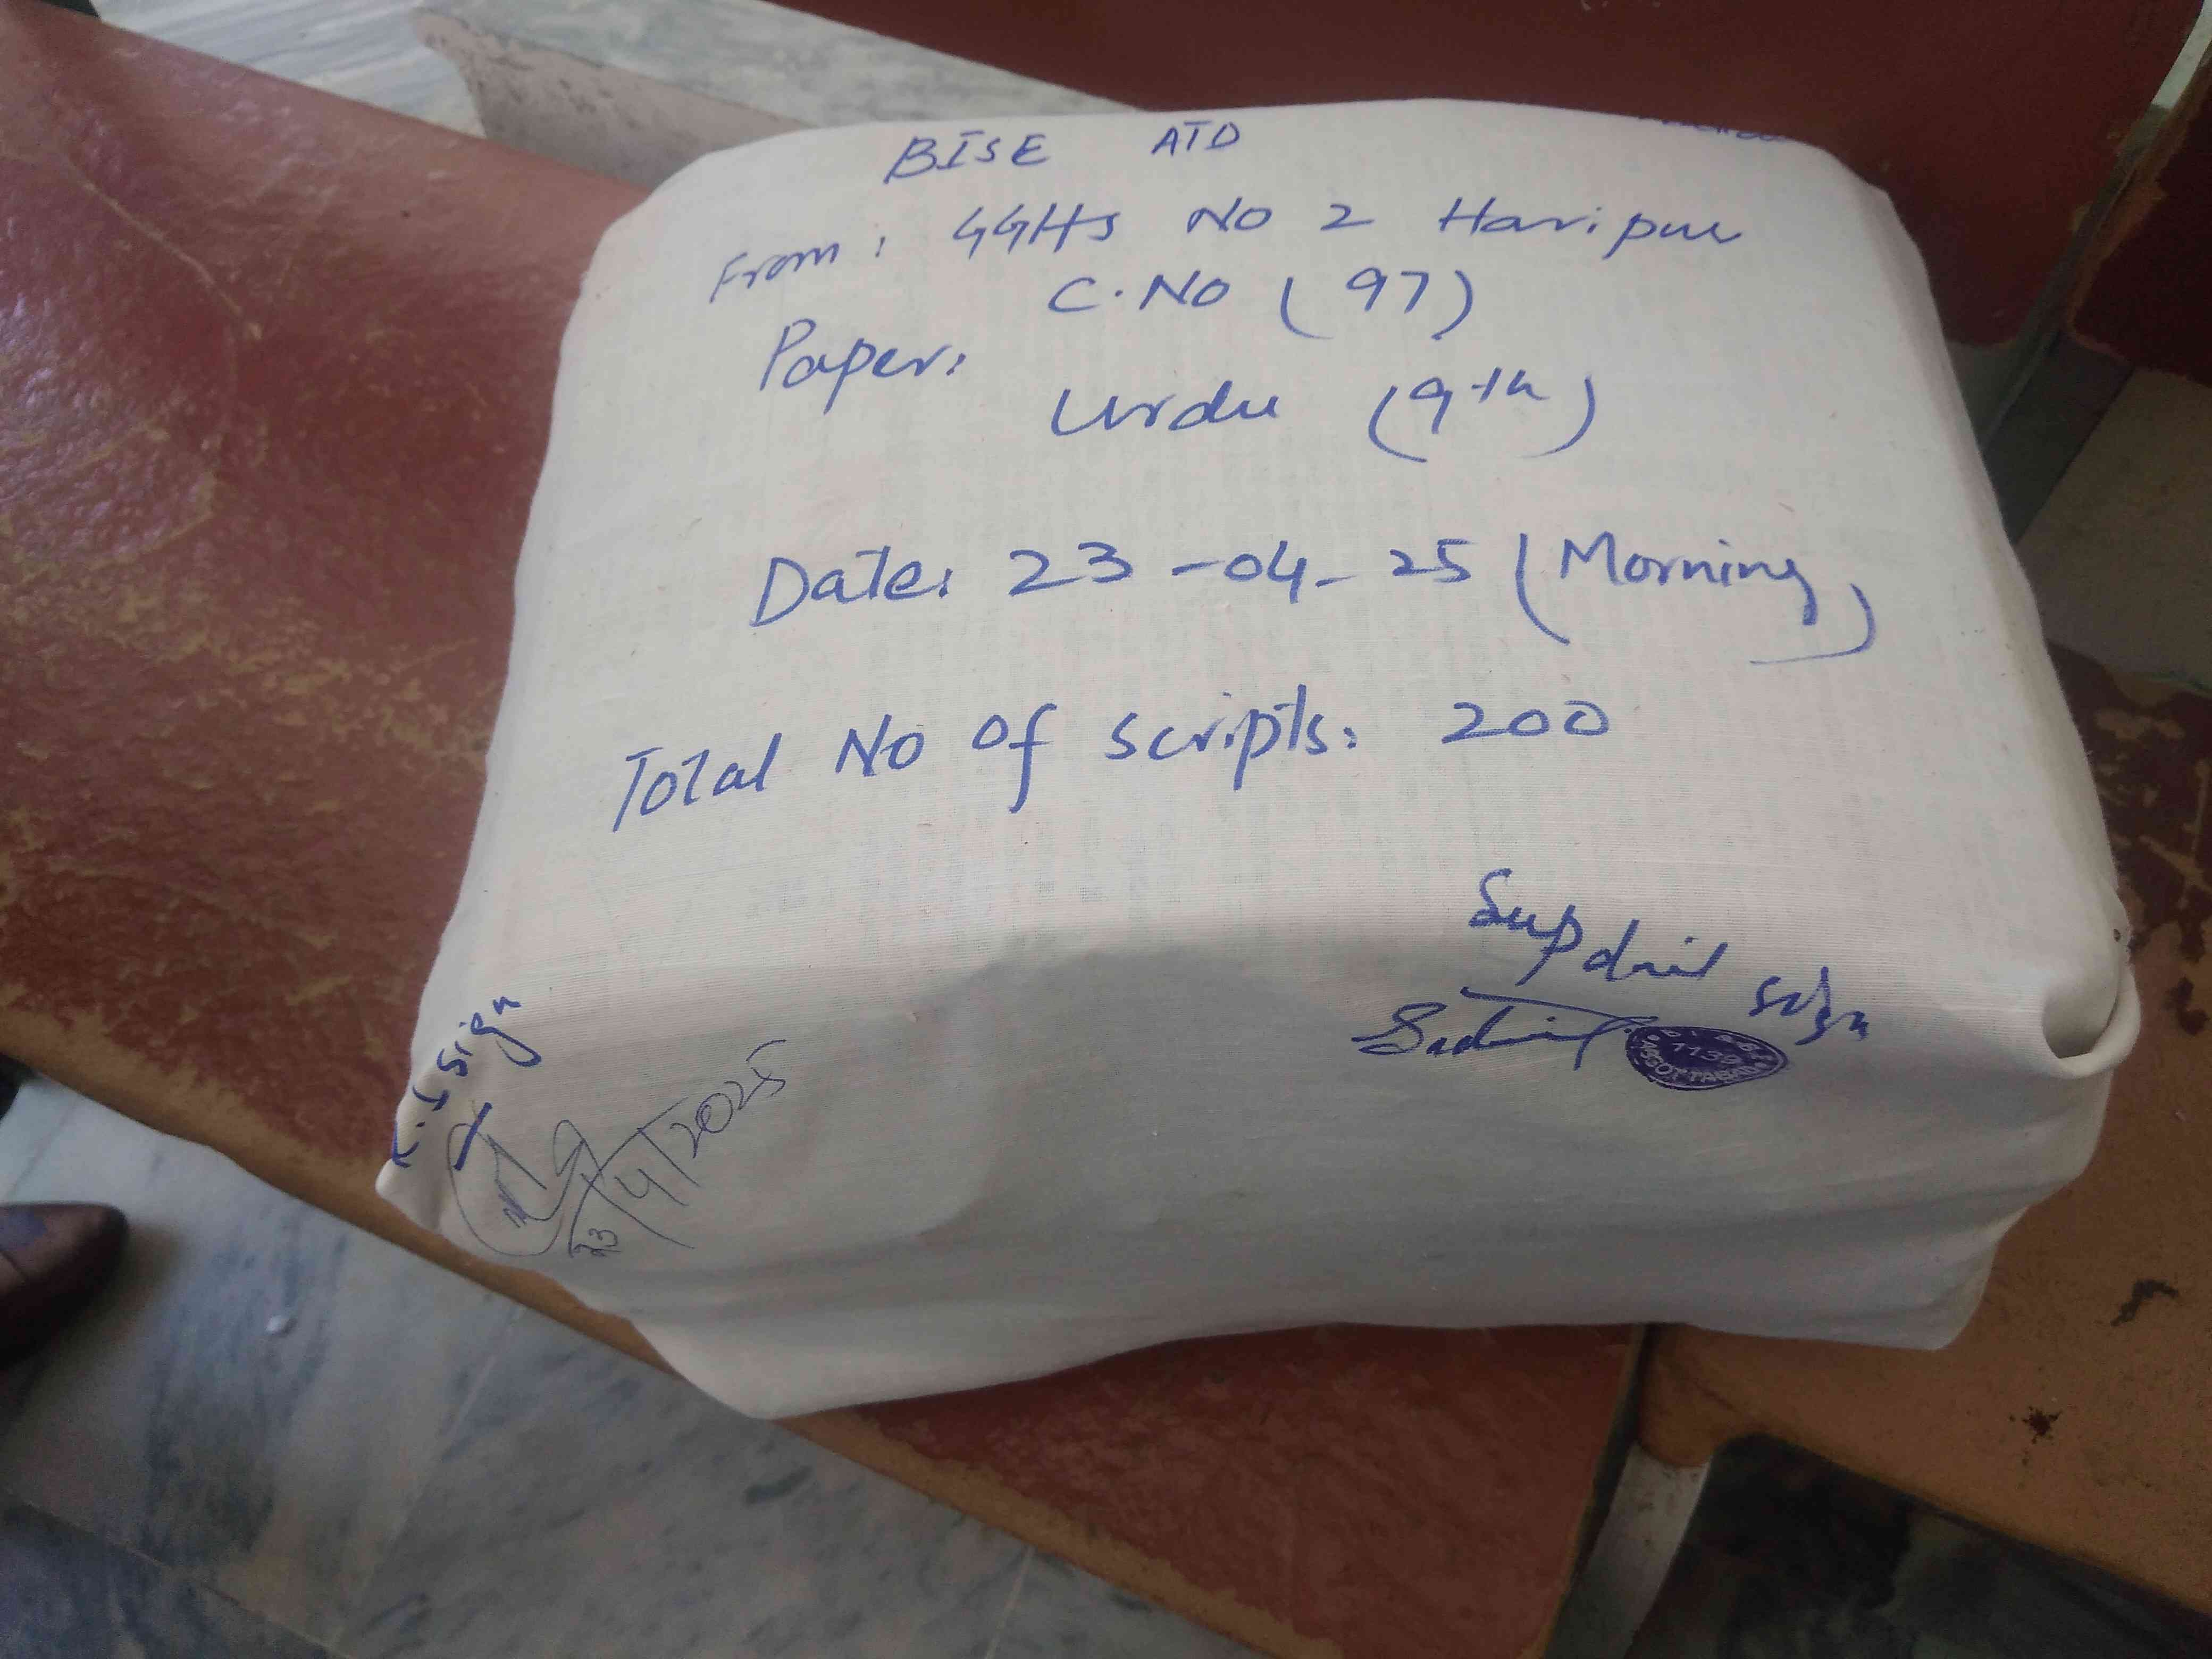 BISE ATD
From: GGHS No 2 Haripur
C.No (97)
Paper:
Urdu (9th)
Date: 23-04-25 (Morning)
Total No of scripts: 200
Supdnt sign
sign
23/4/2025
ABBOTTABAD